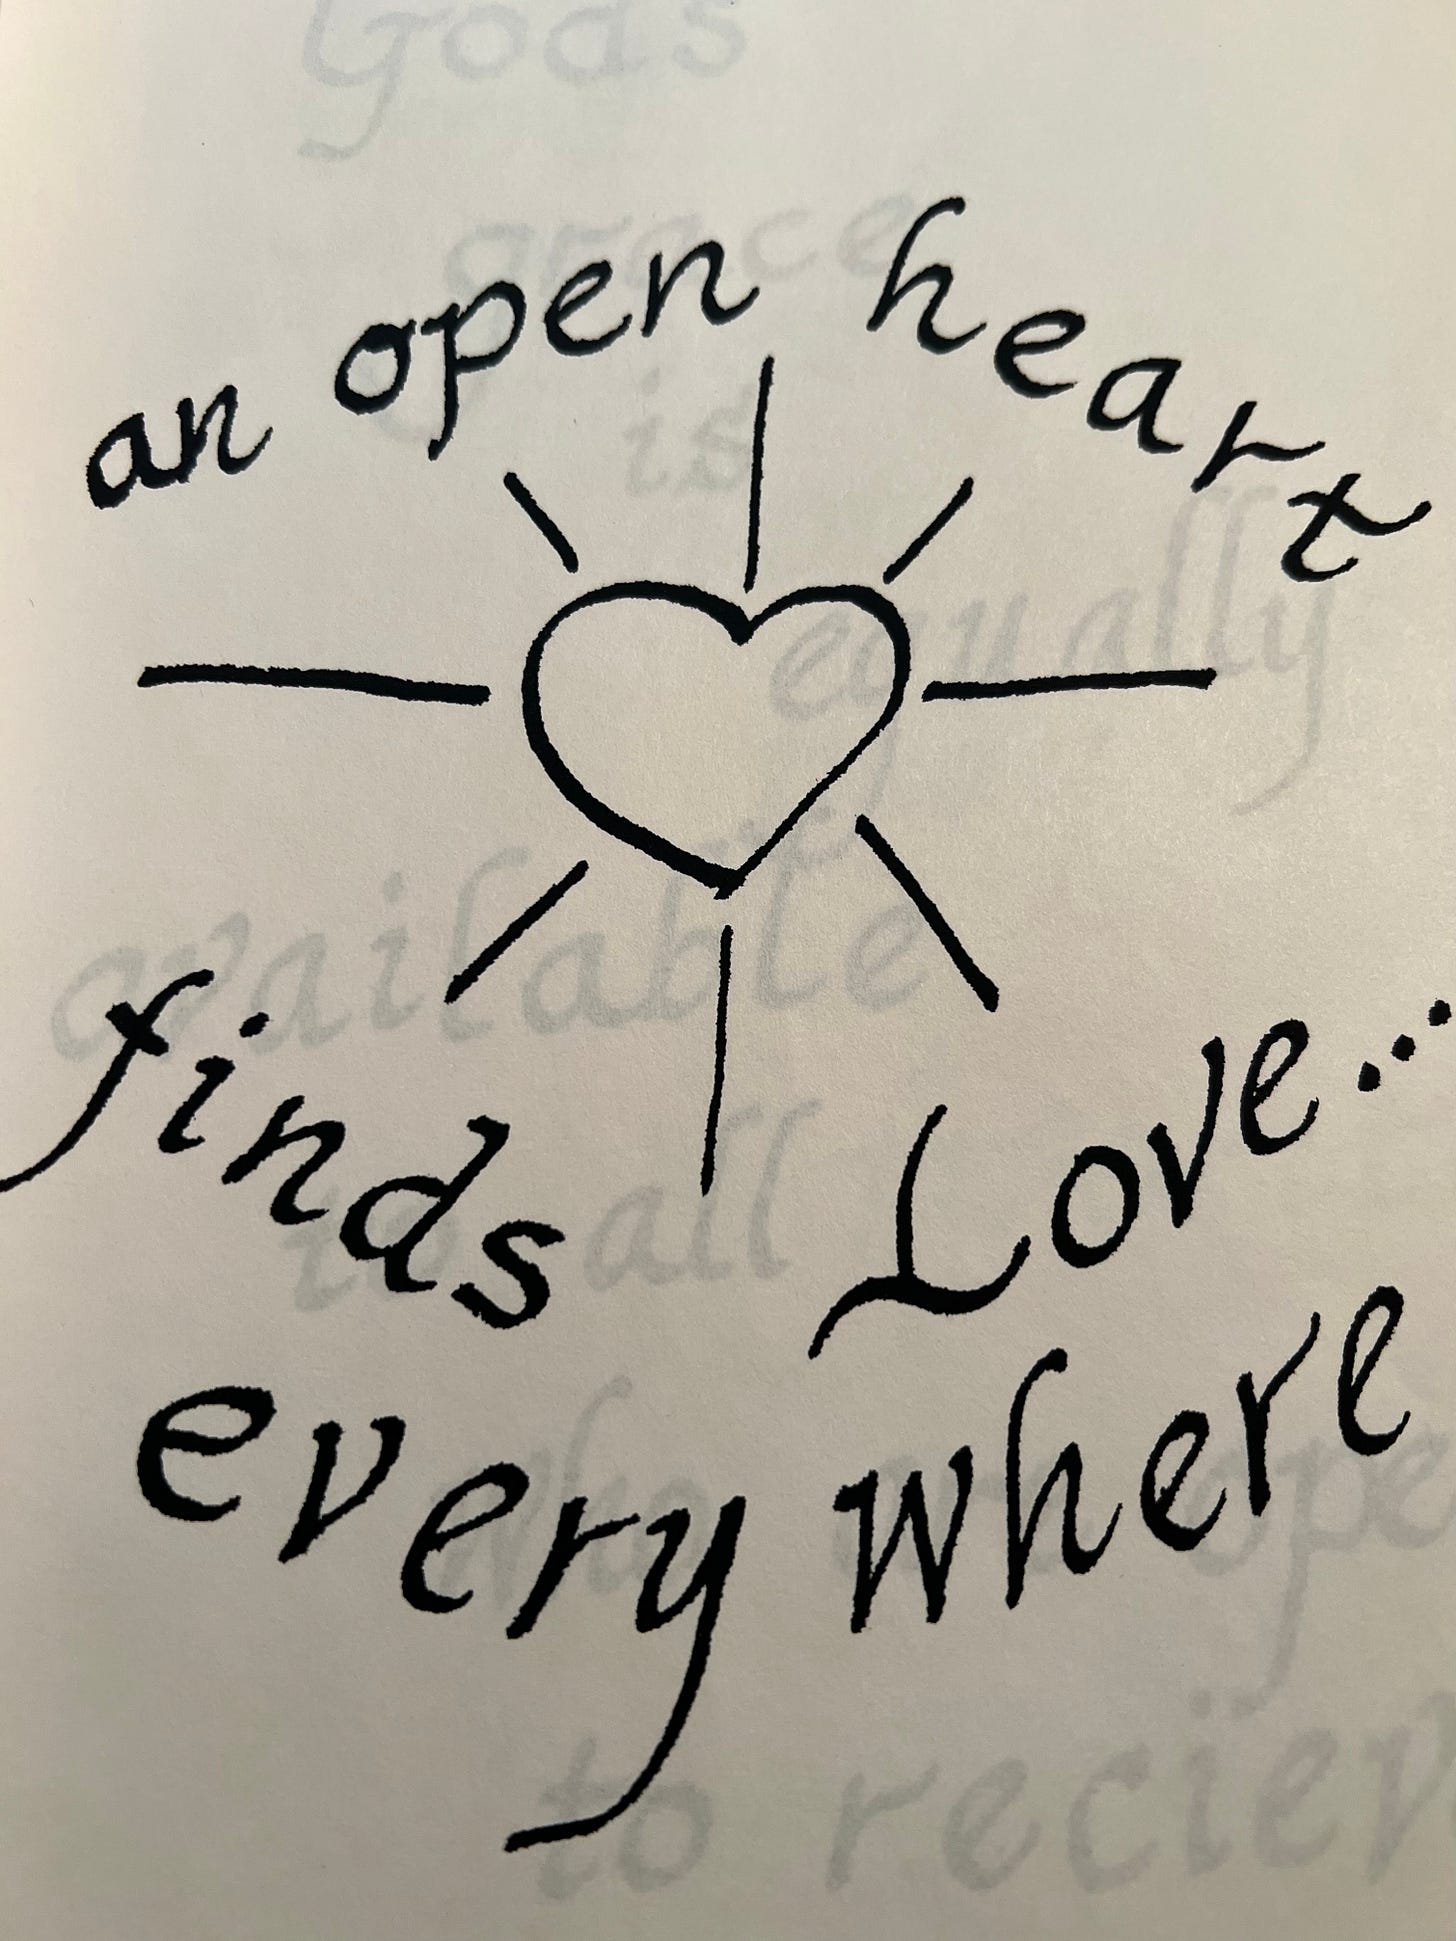 an open heart
finds Love...
every where
Gods
grace
is
equally
available
to all
who
to reciev